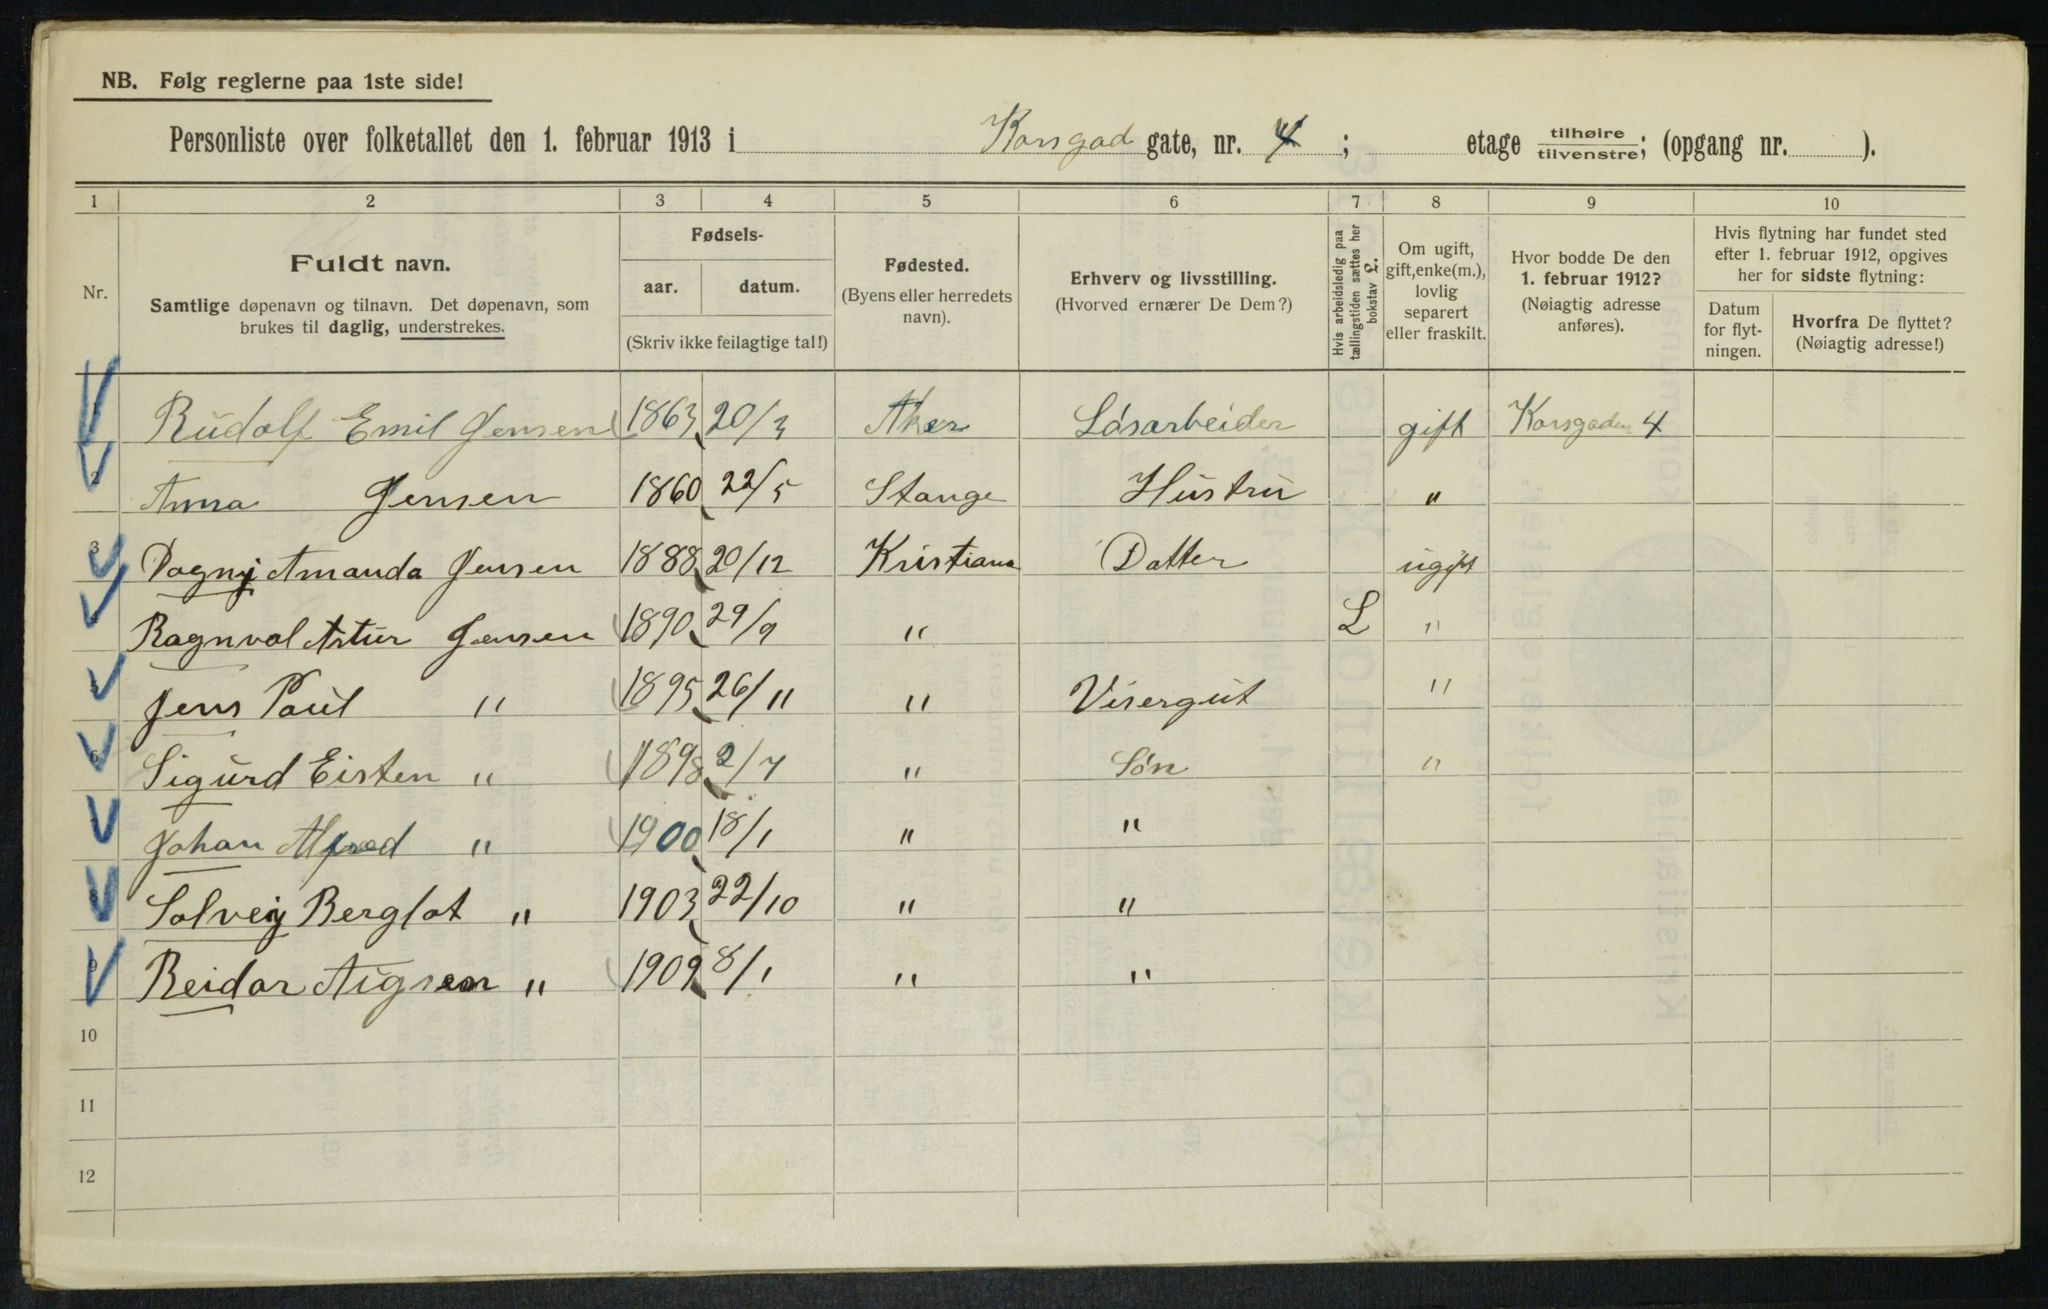 NB. Følg reglerne paa 1ste side!
Personliste over folketallet den 1. februar 1913 i Korsgad gate, nr. 4 ; etage tilhøire tilvenstre; (opgang nr. ).
1 2 3 4 5 6 7 8 9 10
Nr.
Fuldt navn.
Samtlige døpenavn og tilnavn. Det døpenavn, som
brukes til daglig, understrekes.
Fødsels-
aar. datum.
(Skriv ikke feilagtige tal!)
Fødested.
(Byens eller herredets
navn).
Erhverv og livsstilling.
(Hvorved ernærer De Dem?)
Hvis arbeidsledig paa
tællingstiden sættes her
bokstav L.
Om ugift,
gift, enke(m.),
lovlig
separert
eller fraskilt.
Hvor bodde De den
1. februar 1912?
(Nøiagtig adresse
anføres).
Hvis flytning har fundet sted
efter 1. februar 1912, opgives
her for sidste flytning:
Datum
for flyt-
ningen.
Hvorfra De flyttet?
(Nøiagtig adresse!)
Rudolf Emil Jensen 1863 20/3 Aker Løsarbeider gift Korsgaden 4
2 Anna Jensen 1860 22/5 Stange Hustru "
3 Dagny Amanda Jensen 1888 20/12 Kristiana Datter ugift
Ragnval Artur Jensen 1890 29/9 " L "
5 Jens Paul " 1895 26/11 " Visergut "
6 Sigurd Eisten " 1898 2/7 " Søn "
7 Johan Alfred " 1900 18/1 " "
8 Solveig Berglot " 1903 22/10 " "
9 Reidar Aigsen " 1909 8/1 " "
10
11
12